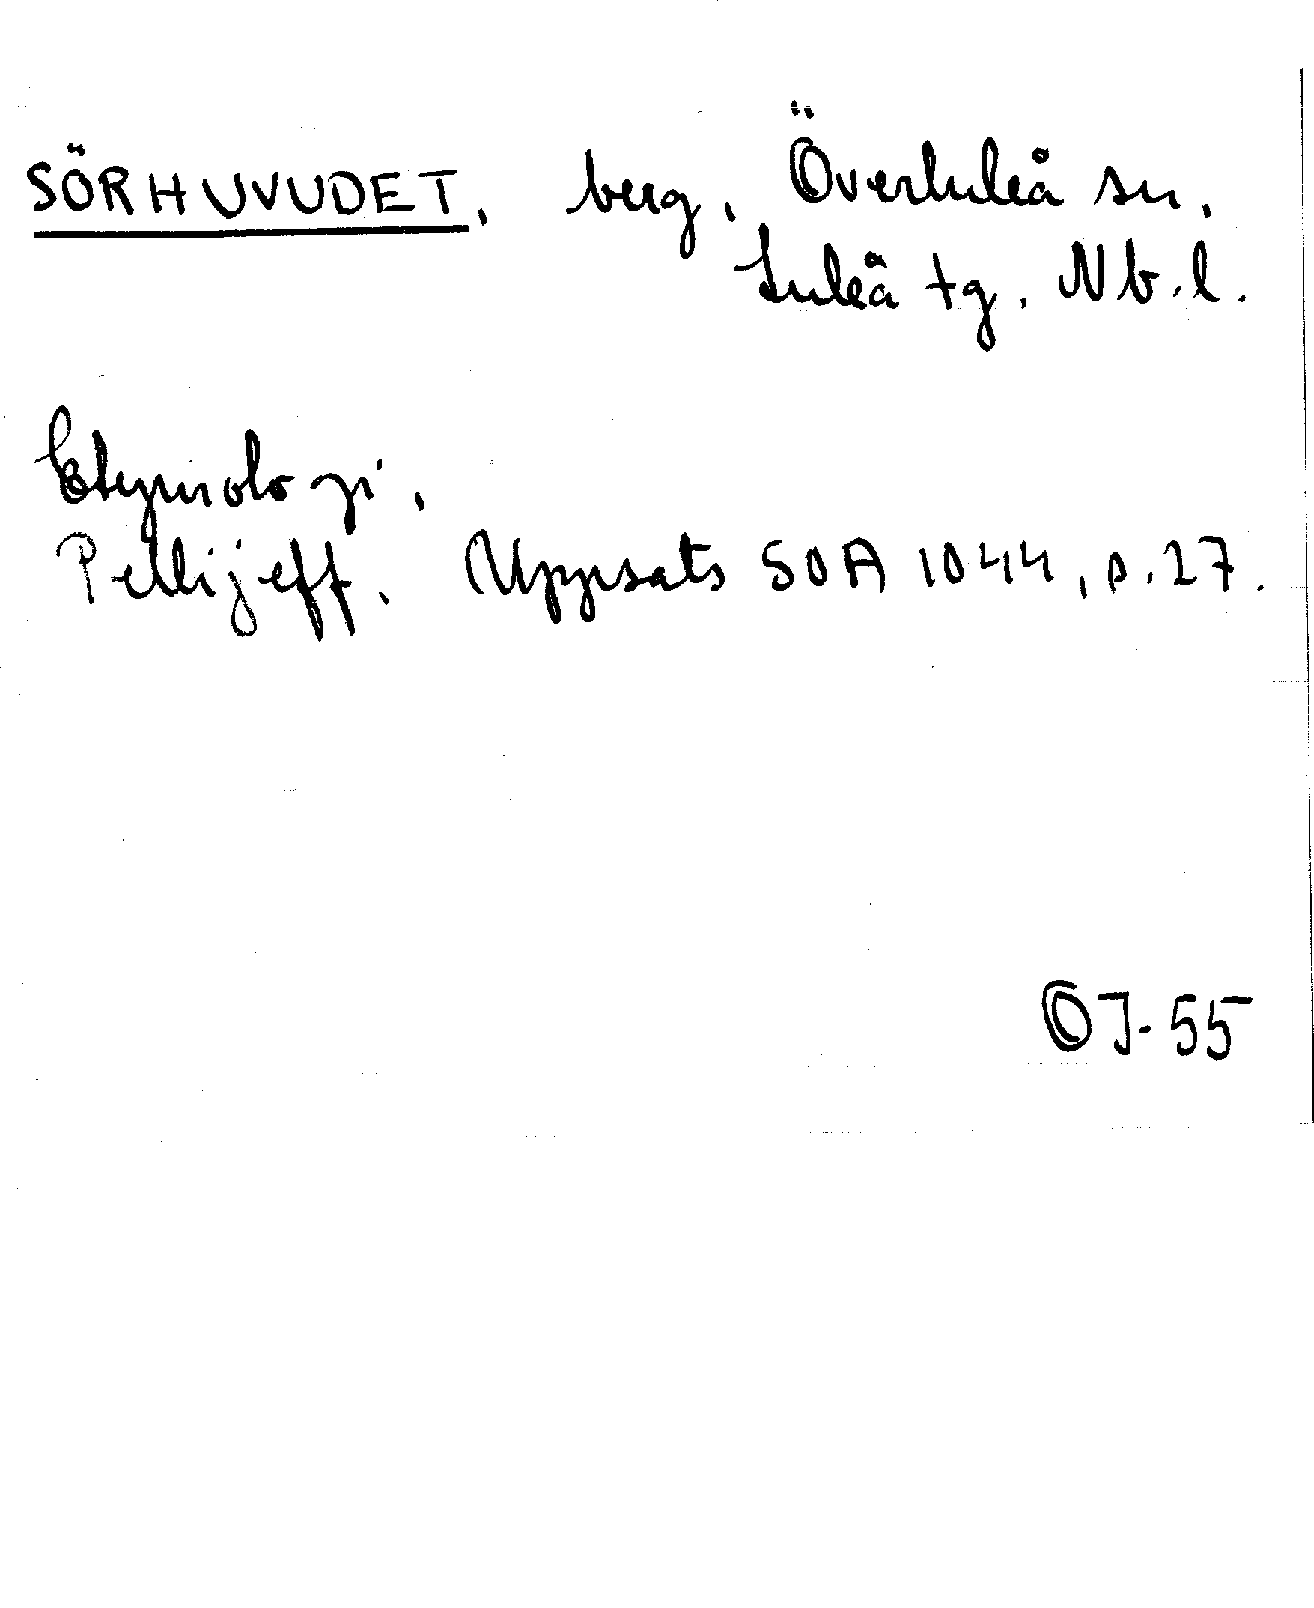 SÖRHUVUDET, berg, Överluleå sn,
Luleå tg, Nb.l.
Etymologi,
Pellijeff, Uppsats SOA 1044, s. 27.
OJ-55